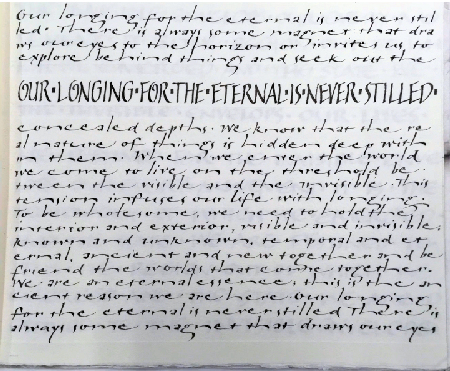 Our longing for the eternal is never stil
led. There is always some magnet that dra
ws our eyes to the horizon or invites us to
explore behind things and seek out the
OUR·LONGING·FOR·THE·ETERNAL·IS·NEVER·STILLED·
concealed depths. We know that the re
al nature of things is hidden deep with
in them. When we enter the world
we come to live on the threshold be
tween the visible and the invisible. This
tension infuses our life with longing.
To be wholesome, we need to hold the
interior and exterior, visible and invisible,
known and unknown, temporal and et
ernal, ancient and new together and be
friend the worlds that come together.
We are an eternal essence; this is the an
cient reason we are here. Our longing
for the eternal is never stilled There is
always some magnet that draws our eyes